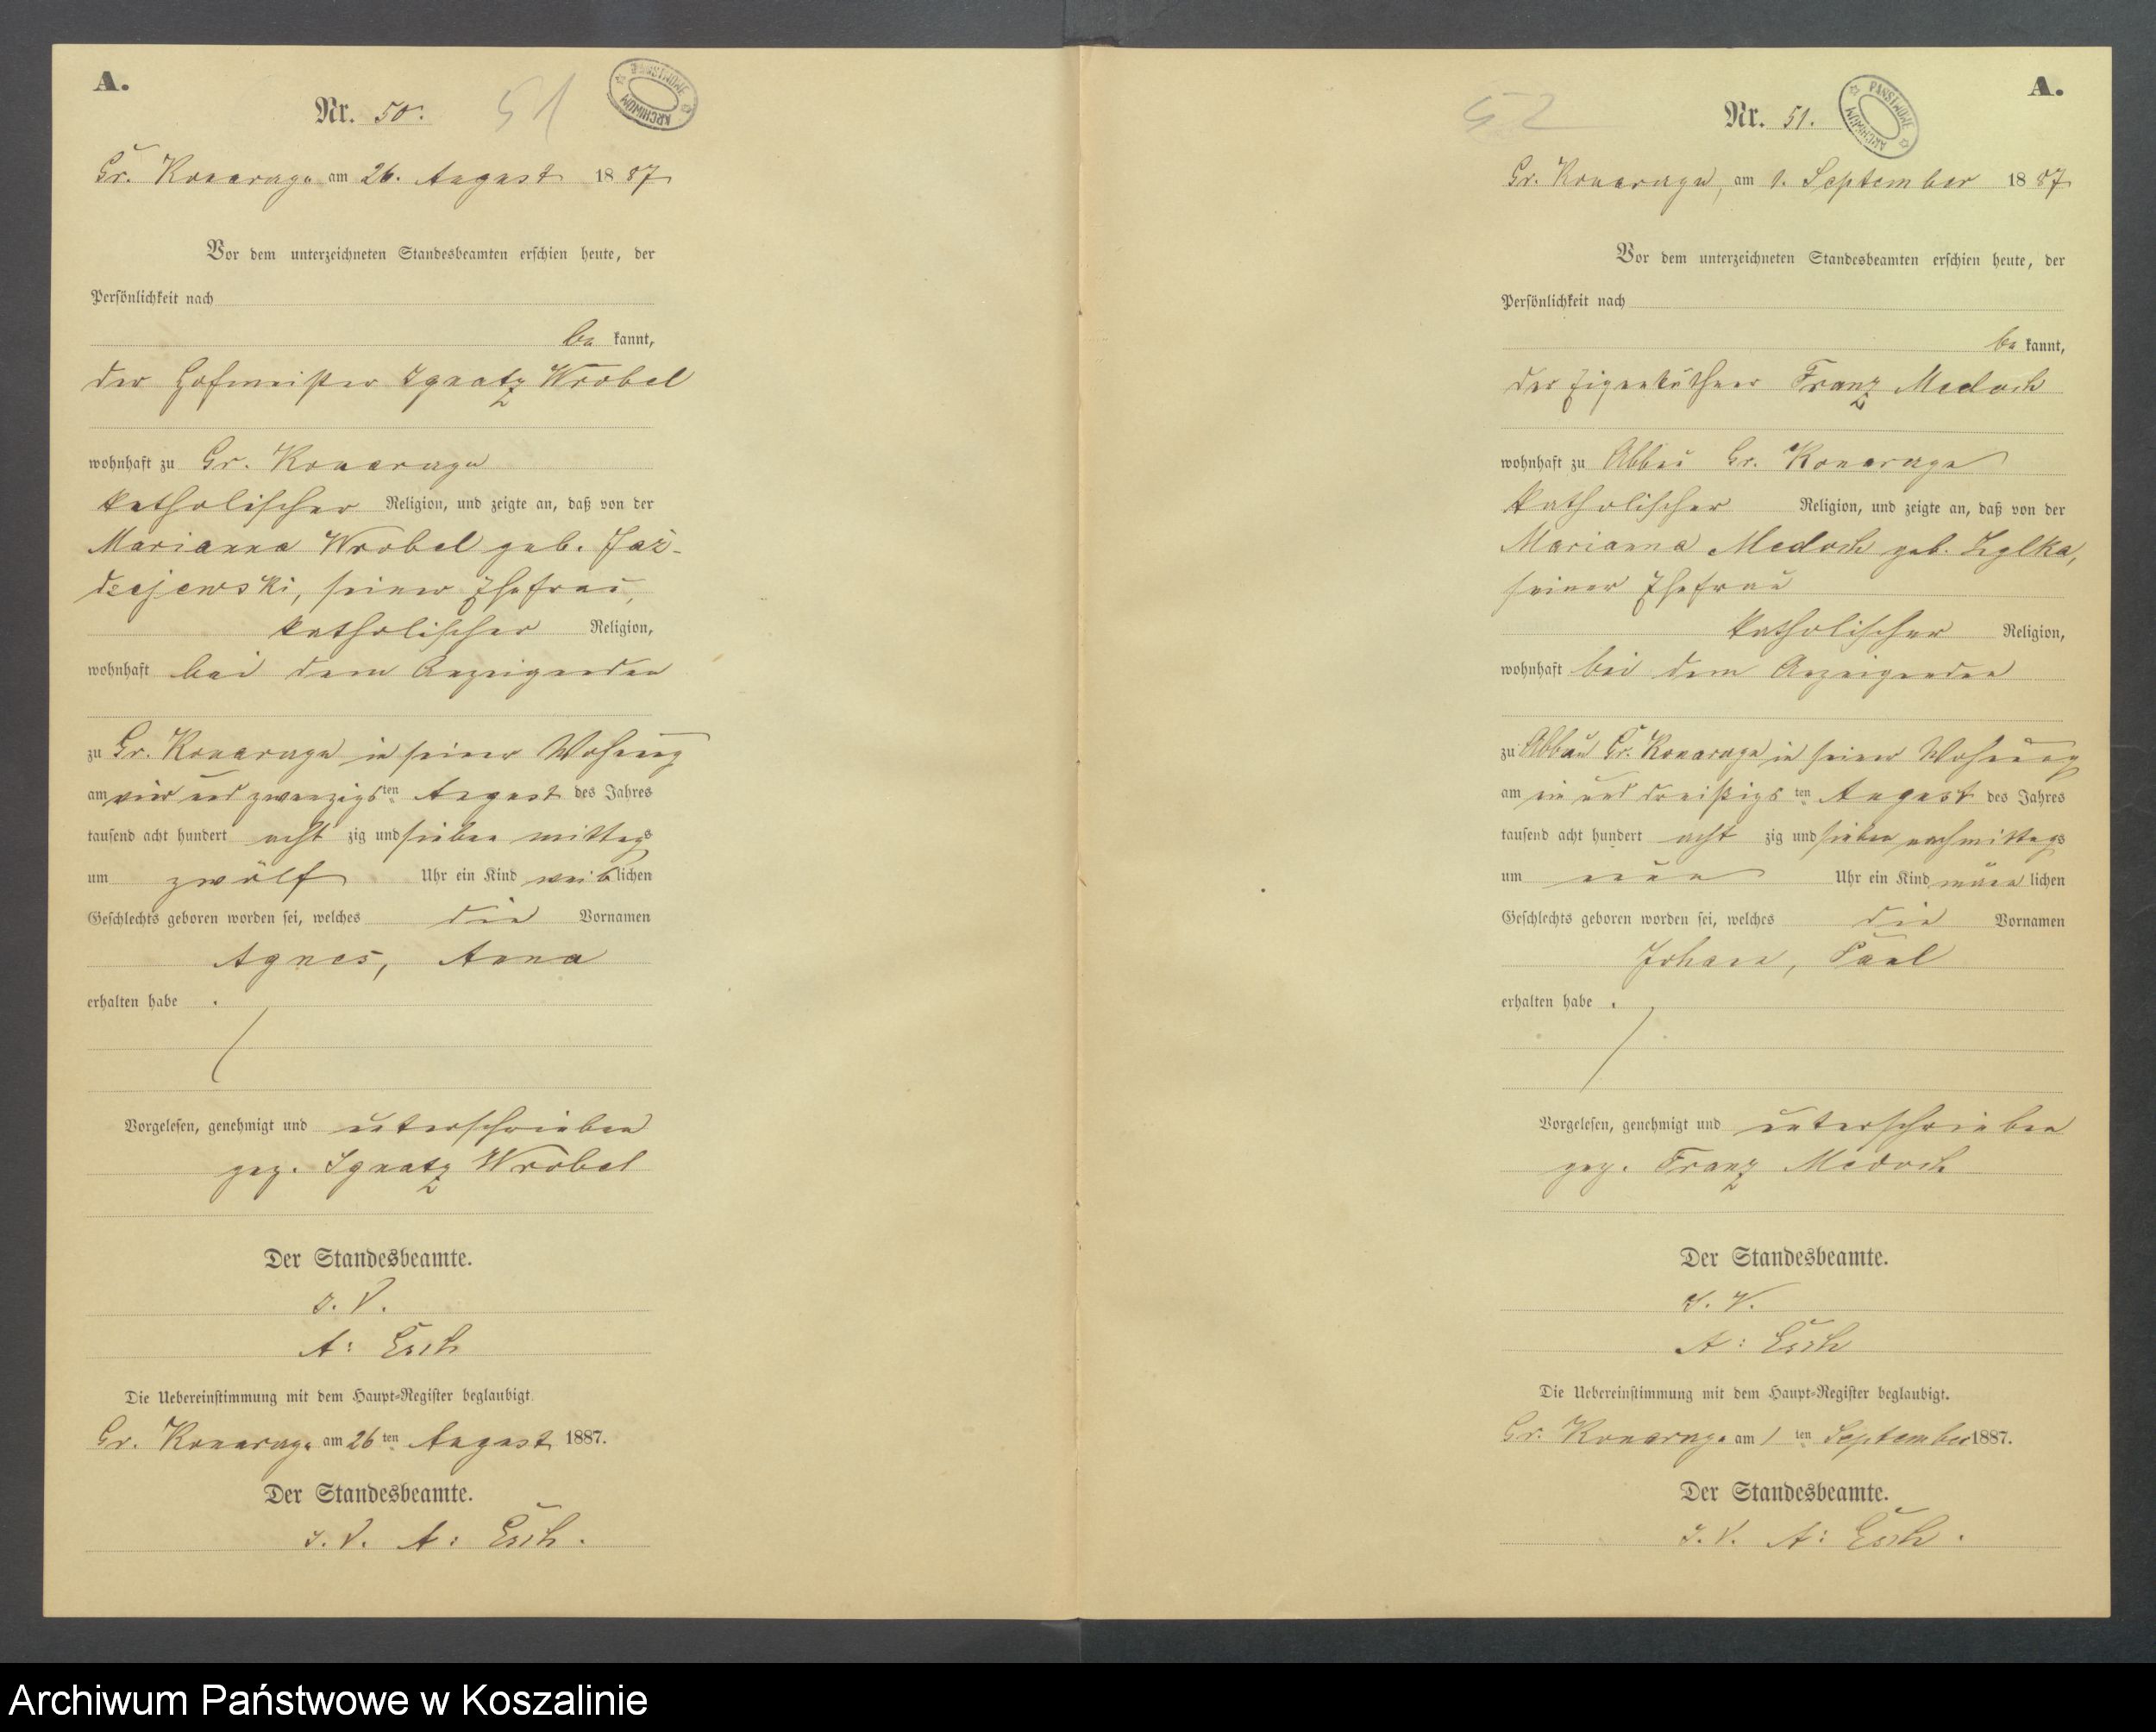 A.
Nr. 50.
51
PAŃSTWOWE ARCHIWUM
Gr. Konarczyn am 26. August 1887
Vor dem unterzeichneten Standesbeamten erschien heute, der
Persönlichkeit nach
be kannt,
der Hofmeister Ignatz Wrobel
wohnhaft zu Gr. Konarczyn
katholischer Religion, und zeigte an, daß von der
Marianna Wrobel geb. Jaz-
dzejewski, seiner Ehefrau,
katholischer Religion,
wohnhaft bei dem Anzeigenden
zu Gr. Konarczyn in seiner Wohnung
am vier und zwanzigsten August des Jahres
tausend acht hundert acht zig und sieben mittags
um zwölf Uhr ein Kind weiblichen
Geschlechts geboren worden sei, welches die Vornamen
Agnes, Anna
erhalten habe .
Vorgelesen, genehmigt und unterschrieben
gez. Ignatz Wrobel
Der Standesbeamte.
J. V.
A: Esch
Die Uebereinstimmung mit dem Haupt-Register beglaubigt
Gr. am 26ten August 1887.
Der Standesbeamte.
J. V. A: Esch.
A.
Nr. 51.
52
PAŃSTWOWE ARCHIWUM
Gr. am 1. September 1887
Vor dem unterzeichneten Standesbeamten erschien heute, der
Persönlichkeit nach
be kannt,
der Eigenkäthner Franz Medoch
wohnhaft zu Abbau Gr.
katholischer Religion, und zeigte an, daß von der
Marianna Medoch geb.
seiner Ehefrau
katholischer Religion,
wohnhaft bei dem Anzeigenden
zu Abbau Gr. in seiner Wohnung
am ein und dreißigsten August des Jahres
tausend acht hundert acht zig und sieben nachmittags
um neun Uhr ein Kind männlichen
Geschlechts geboren worden sei, welches die Vornamen
Johann, Paul
erhalten habe .
Vorgelesen, genehmigt und unterschrieben
gez. Franz Medoch
Der Standesbeamte.
J. V.
A: Esch
Die Uebereinstimmung mit dem Haupt-Register beglaubigt.
Gr. am 1ten September 1887.
Der Standesbeamte.
J. V. A: Esch.
Archiwum Państwowe w Koszalinie